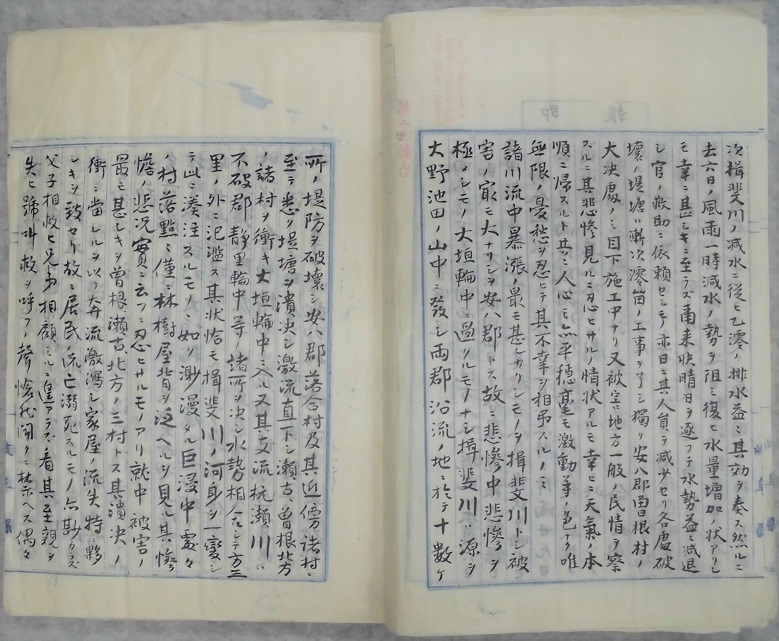 次揖斐川ノ減水ニ從ヒ乙澪ノ排水益ニ其効ヲ奏ス然ルニ
去六日ノ風雨一時減水ノ勢ヲ阻ミ復ヒ水量増加ノ状アリシ
モ幸ニ甚シキニ至ラス爾来快晴日ヲ逐フテ水勢益ニ減退
シ官ノ救助ニ依頼セシモノ亦日ニ其人員ヲ減少セリ各處破
壊ノ堤塘ハ漸次澪留ノ工事ヲ了シ獨リ安八郡曽根村ノ
大決處ノミ目下施工中ナリ又被害地方一般ノ民情ヲ察
スルニ其悲惨見ルニ忍ヒサルノ情状アルモ幸ヒニ天氣ノ本
順ニ帰スルト共ニ人心モ亦平穏毫モ激動等ノ色ナク唯
無限ノ憂愁ヲ忍ヒテ其不幸ヲ相弔スルノミ
諸川流中暴漲ノ最モ甚シカリシモノヲ揖斐川トシ被
害ノ最モ大ナリシヲ安八郡トス故ニ悲惨中悲惨ヲ
極ノシモノ大垣輪中ニ過クルモノナシ揖斐川ハ源ヲ
大野池田ノ山中ニ發シ両郡沿流ノ地ニ於テ十数ケ
所ノ堤防ヲ破壊シ安八郡落合村及其近傍諸村ニ
至テ悉ク堤塘ヲ潰決シ激流直下シ瀬古、曽根北方
ノ諸村ヲ衝キ大垣輪中ニ入ル又其支流杭瀬川ハ
不破郡静里輪中等諸所ヲ決シ水勢相合シテ方五
里ノ外ニ氾濫ス其状恰モ揖斐川ノ河身ヲ一變シ
テ此ニ湊注スルモノヽ如シ渺漫タル巨浸中處々
ノ村落點々僅ニ林樹屋背ヲ泛ヘルヲ見ル其惨
憺ノ悲況實ニ云フニ忍ヒサルモノアリ就中被害ノ
最モ甚シキヲ曽根瀬古北方ノ三村トス其潰決ノ
衝ニ當レルヲ以テ奔流激瀉シ家屋ノ流失特ニ夥
シキヲ致セリ故ニ居民ノ流亡溺死スルモノ亦尠カラス
父子相救ヒ兄弟相顧ミルニ遑アラス看其至親ヲ
失ヒ號叫救ヲ呼フノ聲愴然聞クニ禁ヘス偶々